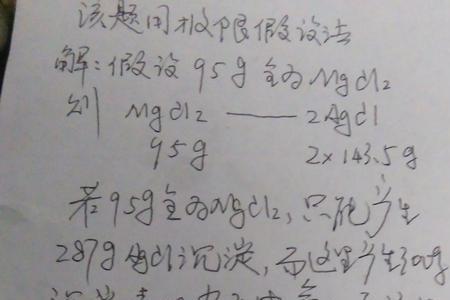 该题用极限假设法
解:假设95g全为MgCl2
则 MgCl2 —— 2AgCl
95g 2×143.5g
若95g全为MgCl2,只能产生
287g AgCl沉淀,而这里产生300g